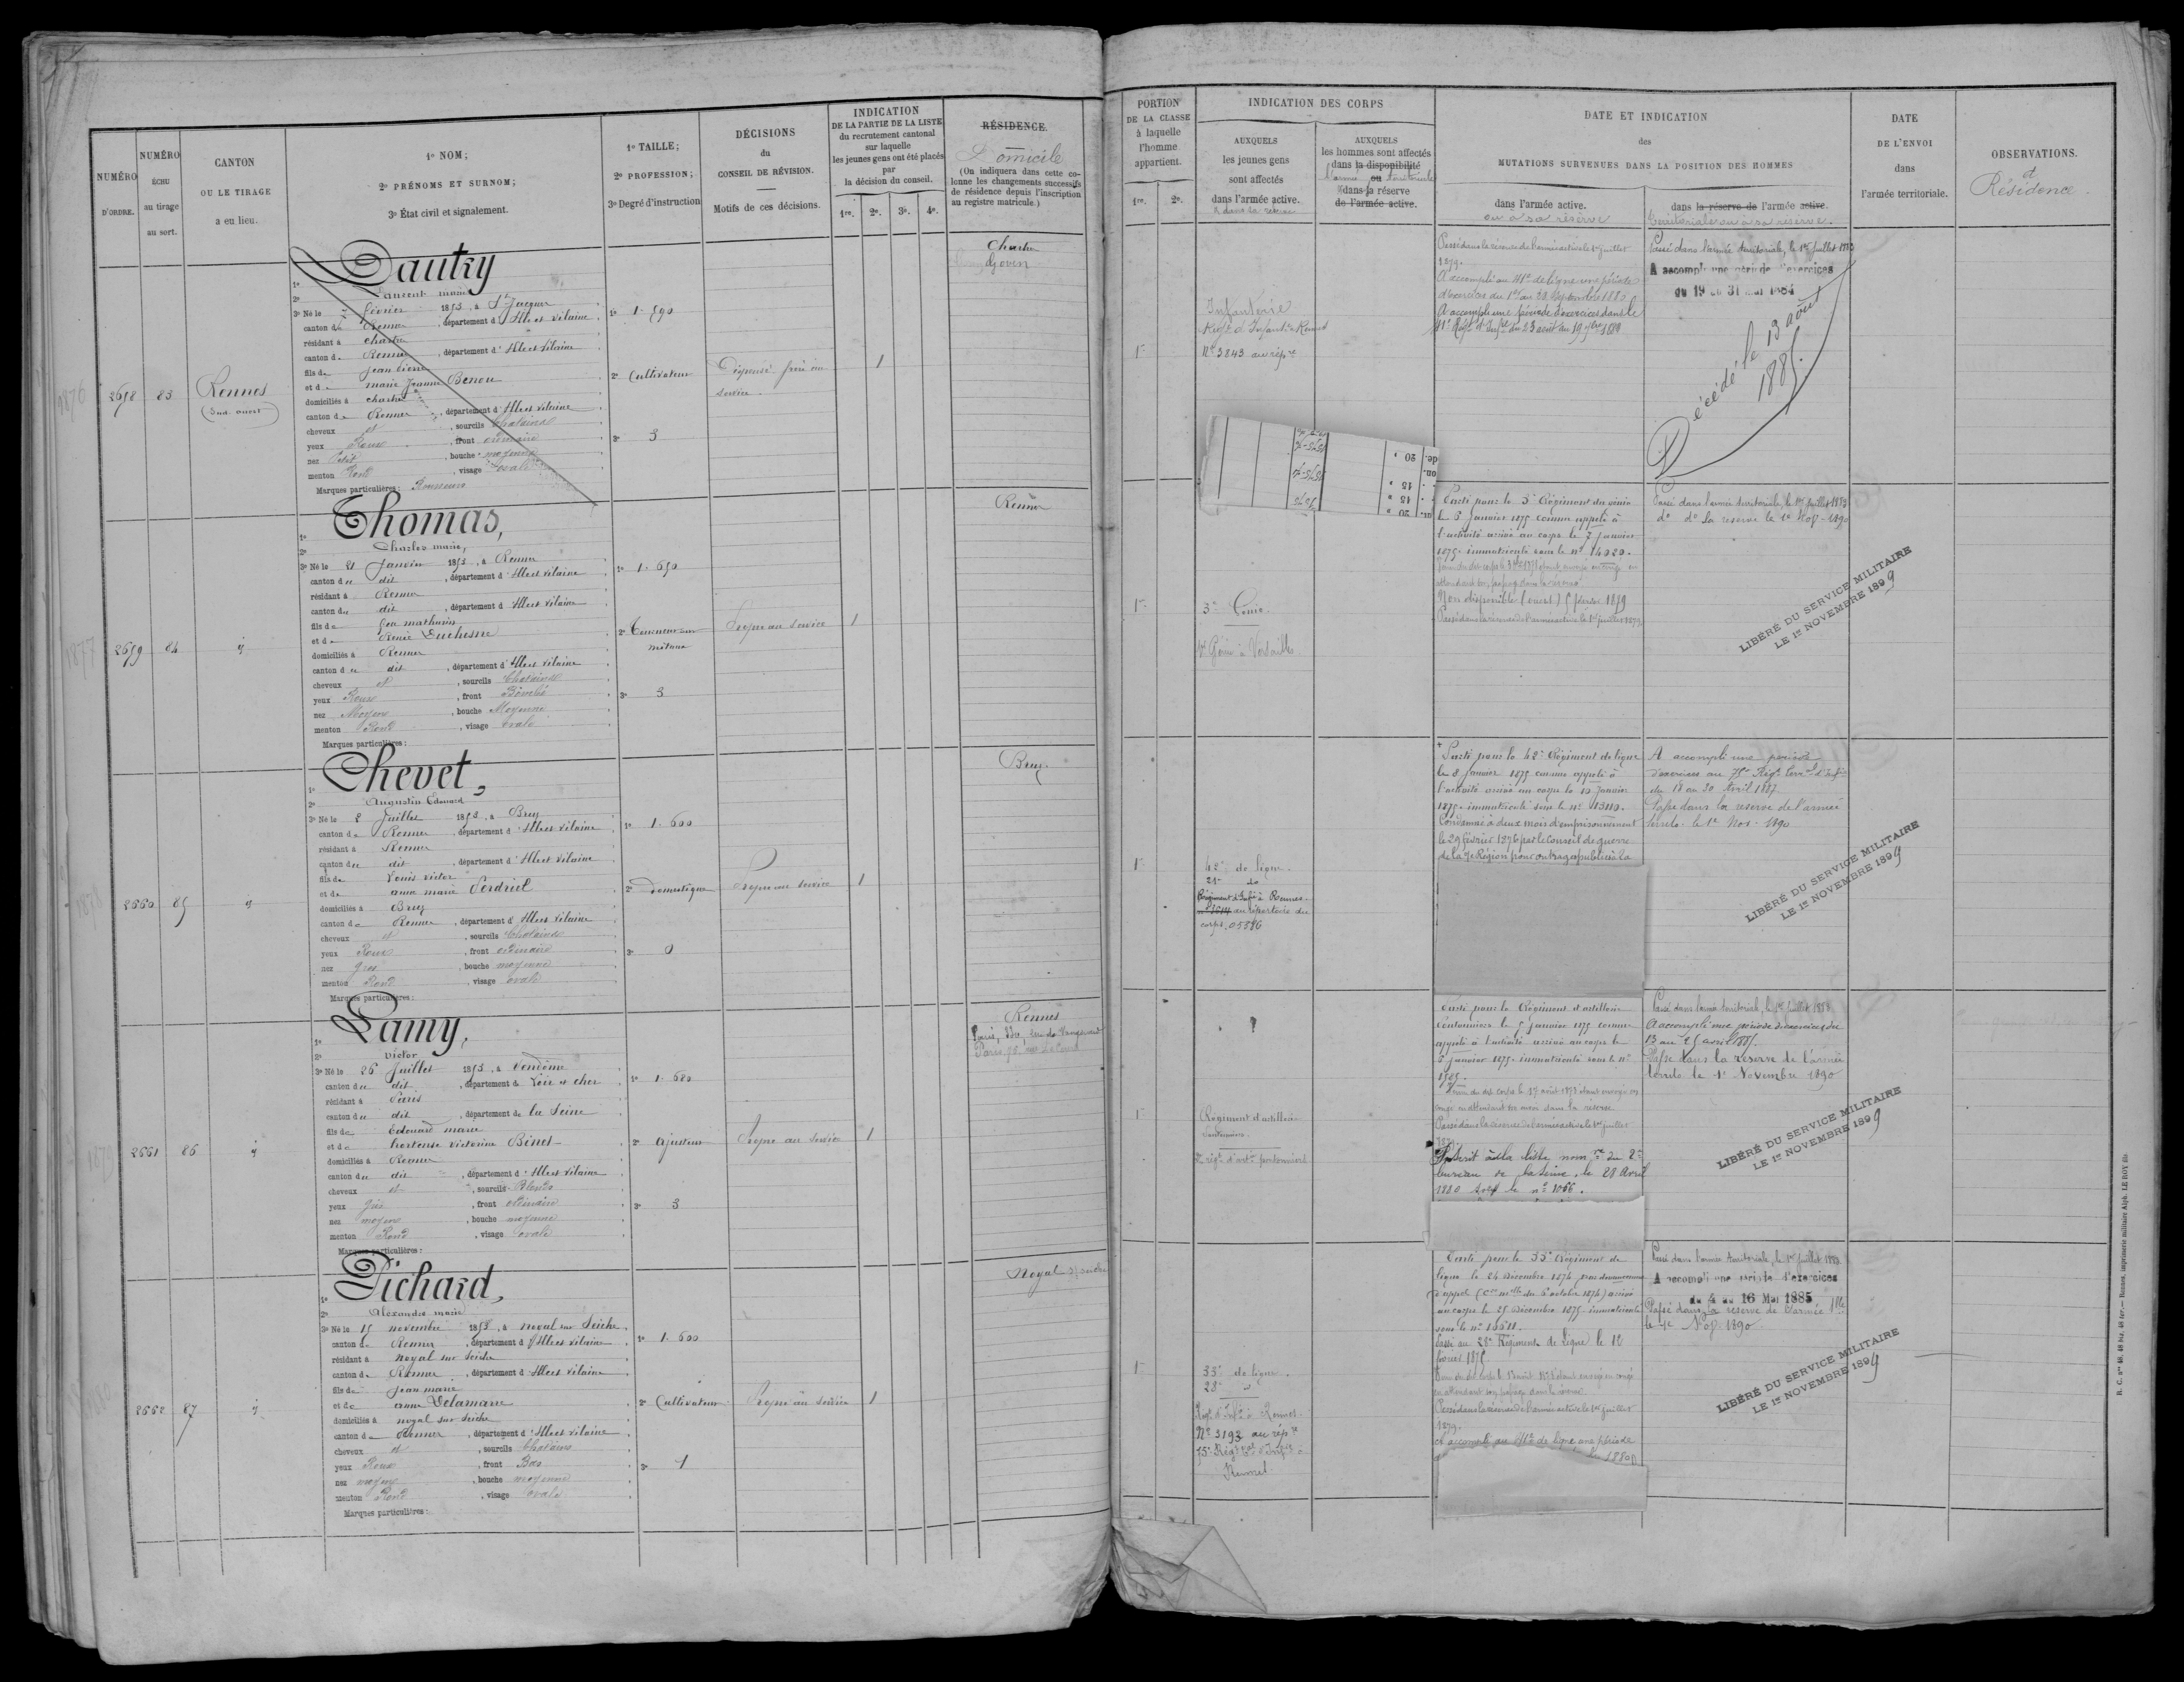 NUMÉRO
D'ORDRE.
NUMÉRO
ÉCHU
au tirage
au sort.
CANTON
OU LE TIRAGE
a eu lieu.
1º NOM;
2º PRÉNOMS ET SURNOM;
3º État civil et signalement.
1º TAILLE;
2º PROFESSION;
3º Degré d'instruction
DÉCISIONS
du
CONSEIL DE RÉVISION.
Motifs de ces décisions.
INDICATION
DE LA PARTIE DE LA LISTE
du recrutement cantonal
sur laquelle
les jeunes gens ont été placés
par
la décision du conseil.
1re. 2e. 3e. 4e.
RÉSIDENCE.
Domicile
(On indiquera dans cette co-
lonne les changements successifs
de résidence depuis l'inscription
au registre matricule.)
2658 83 Rennes
(Sud-ouest)
1º Dautry
2º Laurent marie
3º Né le 7 février 1853, à St Jacques
canton de Rennes, département d'Ille et Vilaine
résidant à chartres
canton de Rennes, département d'Ille et Vilaine
fils de jean pierre
et de marie jeanne Benou
domiciliés à chartres
canton de Rennes, département d'Ille et Vilaine
cheveux et, sourcils Chatains
yeux Roux, front ordinaire
nez Petit, bouche moyenne
menton Rond, visage ovale
Marques particulières: Rousseurs
1º 1.590
2º Cultivateur
3º 3
Dispensé frère au
service.
1
Chartres
Goven
2659 84 id
1º Thomas,
2º Charles marie,
3º Né le 21 janvier 1853, à Rennes
canton du dit, département d'Ille et Vilaine
résidant à Rennes
canton du dit, département d'Ille et Vilaine
fils de feu mathurin
et de Renée Duchesne
domiciliés à Rennes
canton du dit, département d'Ille et Vilaine
cheveux et, sourcils Chatains
yeux Roux, front Bombé
nez Moyen, bouche Moyenne
menton Rond, visage ovale
Marques particulières:
1º 1.650
2º Tourneur sur
métaux
3º 3
Propre au service
1
Rennes
2660 85 id
1º Chevet,
2º Augustin Edouard
3º Né le 8 juillet 1853, à Bruz
canton de Rennes, département d'Ille et Vilaine
résidant à Rennes
canton du dit, département d'Ille et Vilaine
fils de Louis victor
et de anne marie Perdriel
domiciliés à Bruz
canton de Rennes, département d'Ille et Vilaine
cheveux et, sourcils Chatains
yeux Roux, front ordinaire
nez gros, bouche moyenne
menton Rond, visage ovale
Marques particulières:
1º 1.600
2º domestique
3º 0
Propre au service
1
Bruz
2661 86 id
1º Lamy,
2º Victor
3º Né le 26 juillet 1853, à Vendôme
canton du dit, département de Loir et cher
résidant à Paris
canton du dit, département de la Seine
fils de Edouard marie
et de hortense victorine Binet
domiciliés à Rennes
canton du dit, département d'Ille et Vilaine
cheveux et, sourcils Blonds
yeux gris, front ordinaire
nez moyen, bouche moyenne
menton Rond, visage ovale
Marques particulières:
1º 1.680
2º ajusteur
3º 3
Propre au service
1
Rennes
2662 87 id
1º Pichard,
2º Alexandre marie
3º Né le 15 novembre 1853, à noyal sur Seiche
canton de Rennes, département d'Ille et Vilaine
résidant à noyal sur Seiche
canton de Rennes, département d'Ille et Vilaine
fils de jean marie
et de anne Delamarre
domiciliés à noyal sur Seiche
canton de Rennes, département d'Ille et Vilaine
cheveux et, sourcils Chatains
yeux Roux, front Bas
nez moyen, bouche moyenne
menton Rond, visage ovale
Marques particulières:
1º 1.600
2º Cultivateur
3º 1
Propre au service
1
Noyal s/ seiche
PORTION
DE LA CLASSE
à laquelle
l'homme
appartient.
1re. 2e.
INDICATION DES CORPS
AUXQUELS
les jeunes gens
sont affectés
dans l'armée active.
& dans la réserve
AUXQUELS
les hommes sont affectés
dans la disponibilité
l'armée ou territoriale
& dans la réserve
de l'armée active.
DATE ET INDICATION
des
MUTATIONS SURVENUES DANS LA POSITION DES HOMMES
dans l'armée active.
ou à sa réserve
dans la réserve de l'armée active.
territoriale ou à sa réserve.
DATE
DE L'ENVOI
dans
l'armée territoriale.
OBSERVATIONS.
et
Résidence.
1re
Infanterie
Régt d'Infant. Rennes
Nº 3843 au rép.re
Passé dans la réserve de l'armée active le 1er juillet
1879.
A accompli au 41e de ligne une période
d'exercices du 1er au 28 Septembre 1880
A accompli une période d'exercices dans le
41e Régt d'Infie du 23 août au 19 7bre 1882
Passé dans l'armée territoriale, le 1er juillet 1883
A accompli une période d'exercices
du 19 au 31 mai 1884
Décédé le 13 août
1885.
1re
3e Génie.
1er Génie à Versailles
Parti pour le 3e Régiment du génie
le 6 Janvier 1875 comme appelé à
l'activité arrivé au corps le 7 janvier
1875. immatriculé sous le nº 14020.
Non disponible (ouest) 5 février 1879
Passé dans la réserve de l'armée active le 1er juillet 1879
Passé dans l'armée territoriale, le 1er juillet 1883
dº dº la reserve le 1er Nov. 1890
LIBÉRÉ DU SERVICE MILITAIRE
LE 1er NOVEMBRE 1899
1re
42e de ligne.
21e do
Régiment d'Infie à Rennes.
au répertoire du
corps. 05886
Parti pour le 42e Régiment de ligne
le 8 Janvier 1875 comme appelé à
l'activité arrivé au corps le 10 Janvier
1875. immatriculé sous le nº 13110.
Condamné à deux mois d'emprisonnement
le 29 février 1876 par le Conseil de guerre
de la 7e Région pour outrages publics à la
A accompli une période
d'exercices au 75e Régt Terr.al d'Infie
du 18 au 30 Avril 1887
Passé dans la reserve de l'armée
territo. le 1er Nov. 1890
LIBÉRÉ DU SERVICE MILITAIRE
LE 1er NOVEMBRE 1899
1re
Régiment d'artillerie
Pontonniers.
2e régt d'artie pontonniers
Parti pour le Régiment d'artillerie
Pontonniers le 5 janvier 1875 comme
appelé à l'activité arrivé au corps le
6 janvier 1875. immatriculé sous le nº
1585.
Passé dans la réserve de l'armée active le 1er juillet
1879.
Inscrit à la liste nom.ve du 2e
bureau de la Seine, le 28 Avril
1880 sous le nº 1066.
Passé dans l'armée territoriale, le 1er juillet 1883
A accompli une période d'exercices du
13 au 25 avril 1885.
Passé dans la réserve de l'armée
territo le 1er Novembre 1890
LIBÉRÉ DU SERVICE MILITAIRE
LE 1er NOVEMBRE 1899
1re
33e de ligne.
28e d
Régt d'Infie à Rennes.
Nº 3193 au rép.re
75e Régt Tal d'Infie à
Rennes
Parti pour le 33e Régiment de
ligne le 24 décembre 1874 par devancement
d'appel (Cre mlle du 6 octobre 1874) arrivé
au corps le 25 décembre 1875. immatriculé
sous le nº 15511.
Passé au 28e Régiment de Ligne le 12
février 1875
Passé dans la réserve de l'armée active le 1er juillet
1879.
A accompli au 41e de ligne une période
Passé dans l'armée territoriale, le 1er juillet 1883
A accompli une période d'exercices
du 4 au 16 Mai 1885
Passé dans la reserve de l'armée Tale
le 1er Nov. 1890
LIBÉRÉ DU SERVICE MILITAIRE
LE 1er NOVEMBRE 1899